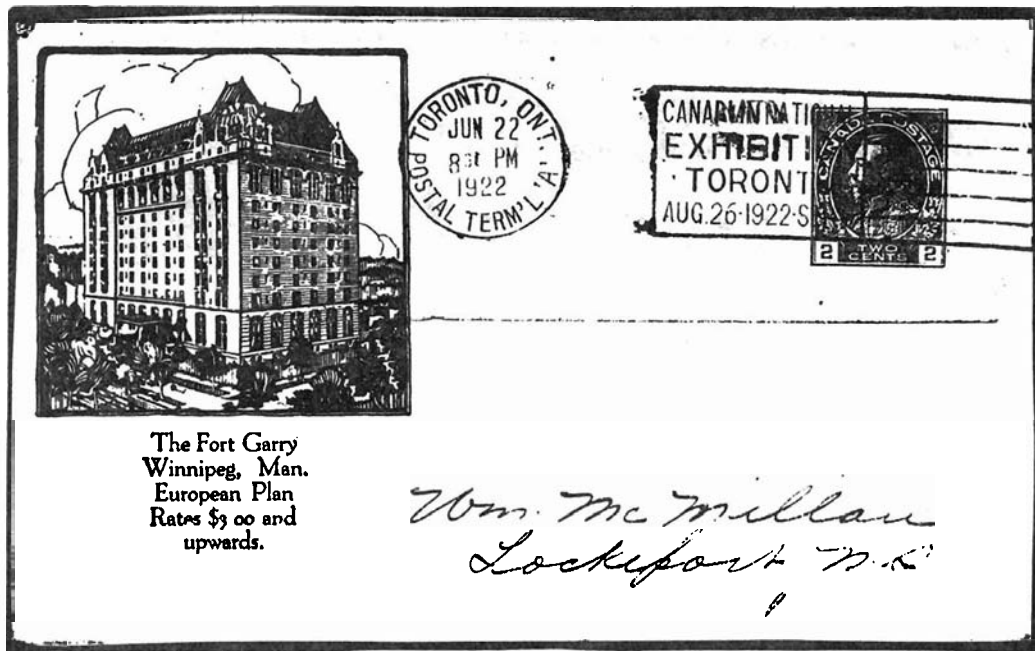 TORONTO, ONT.
JUN 22
PM
1922
POSTAL TERM'L 'A'
CANADIAN NATIONAL
EXHIBITI
TORONT
AUG.26·1922·S
CANADA POSTAGE
2 TWO CENTS 2
The Fort Garry
Winnipeg, Man.
European Plan
Rates $3 00 and
upwards.
Wm. McMillan
Lockeport N.S